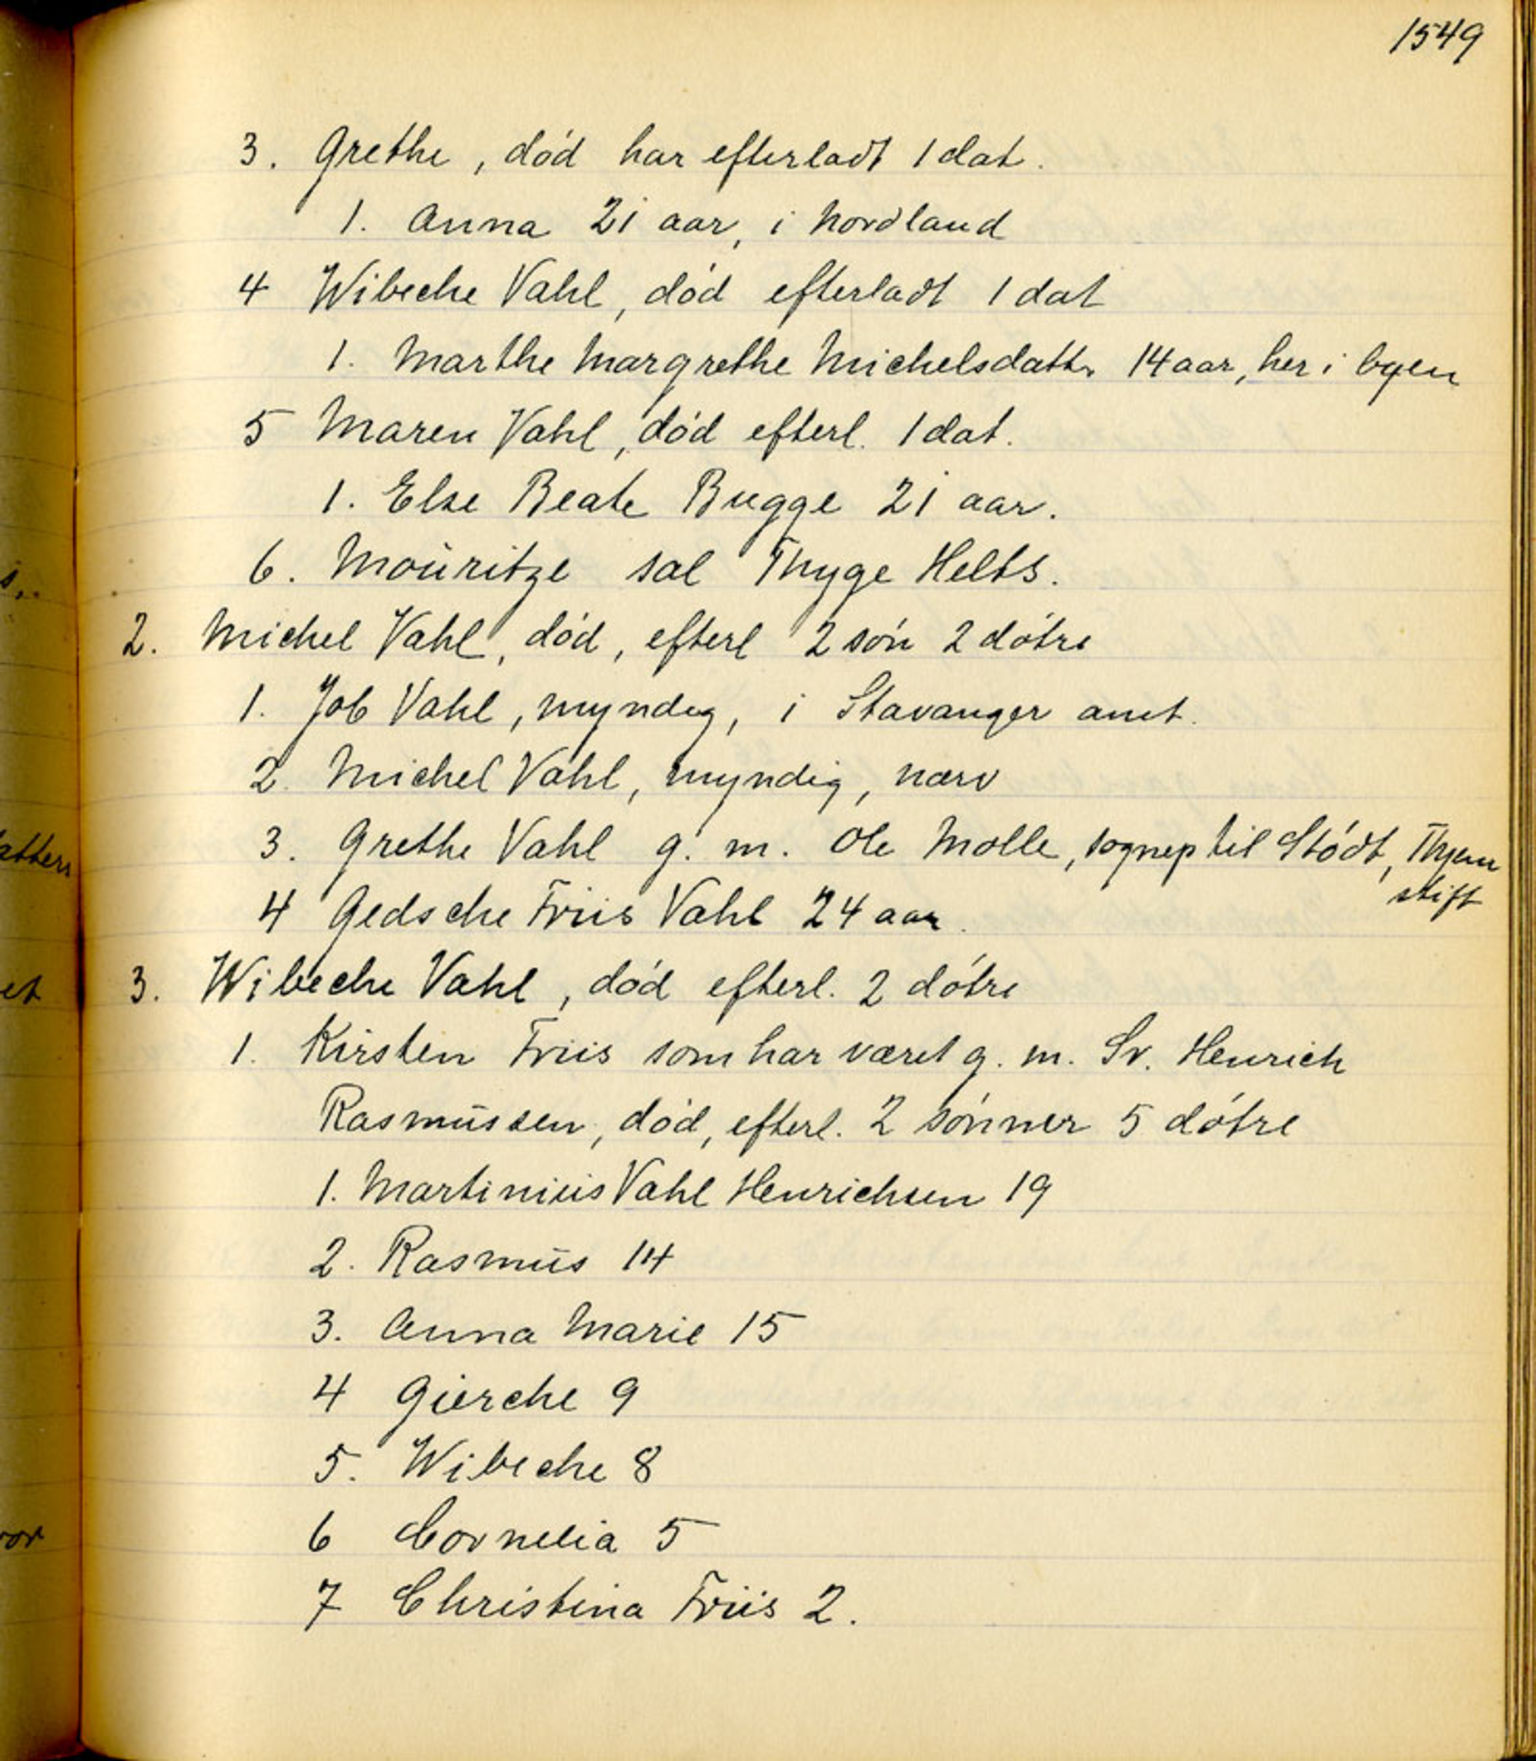 1549
3. Grethe, død har efterladt 1 dat.
1. Anna 21 aar, i Nordland
4 Wibeche Vahl, død efterladt 1 dat
1. Marthe Margrethe Michelsdattr 14 aar, her i byen
5 Maren Vahl, død efterl. 1 dat.
1. Else Beate Bugge 21 aar.
6. Mouritze sal Thyge Helts.
2. Michel Vahl, død, efterl 2 søn 2 døtre
1. Job Vahl, myndig, i Stavanger amt.
2. Michel Vahl, myndig, nærv
3. Grethe Vahl g. m. Ole Molle, sognep til Stødt, Thjem
stift
4 Gedsche Friis Vahl 24 aar.
3. Wibeche Vahl, død efterl. 2 døtre
1. Kirsten Friis som har været g. m. Sr. Henrich
Rasmussen, død, efterl. 2 sønner 5 døtre
1. Martinius Vahl Henrichsen 19
2. Rasmus 14
3. Anna Marie 15
4 Gierche 9
5. Wibeche 8
6 Cornelia 5
7 Christina Friis 2.